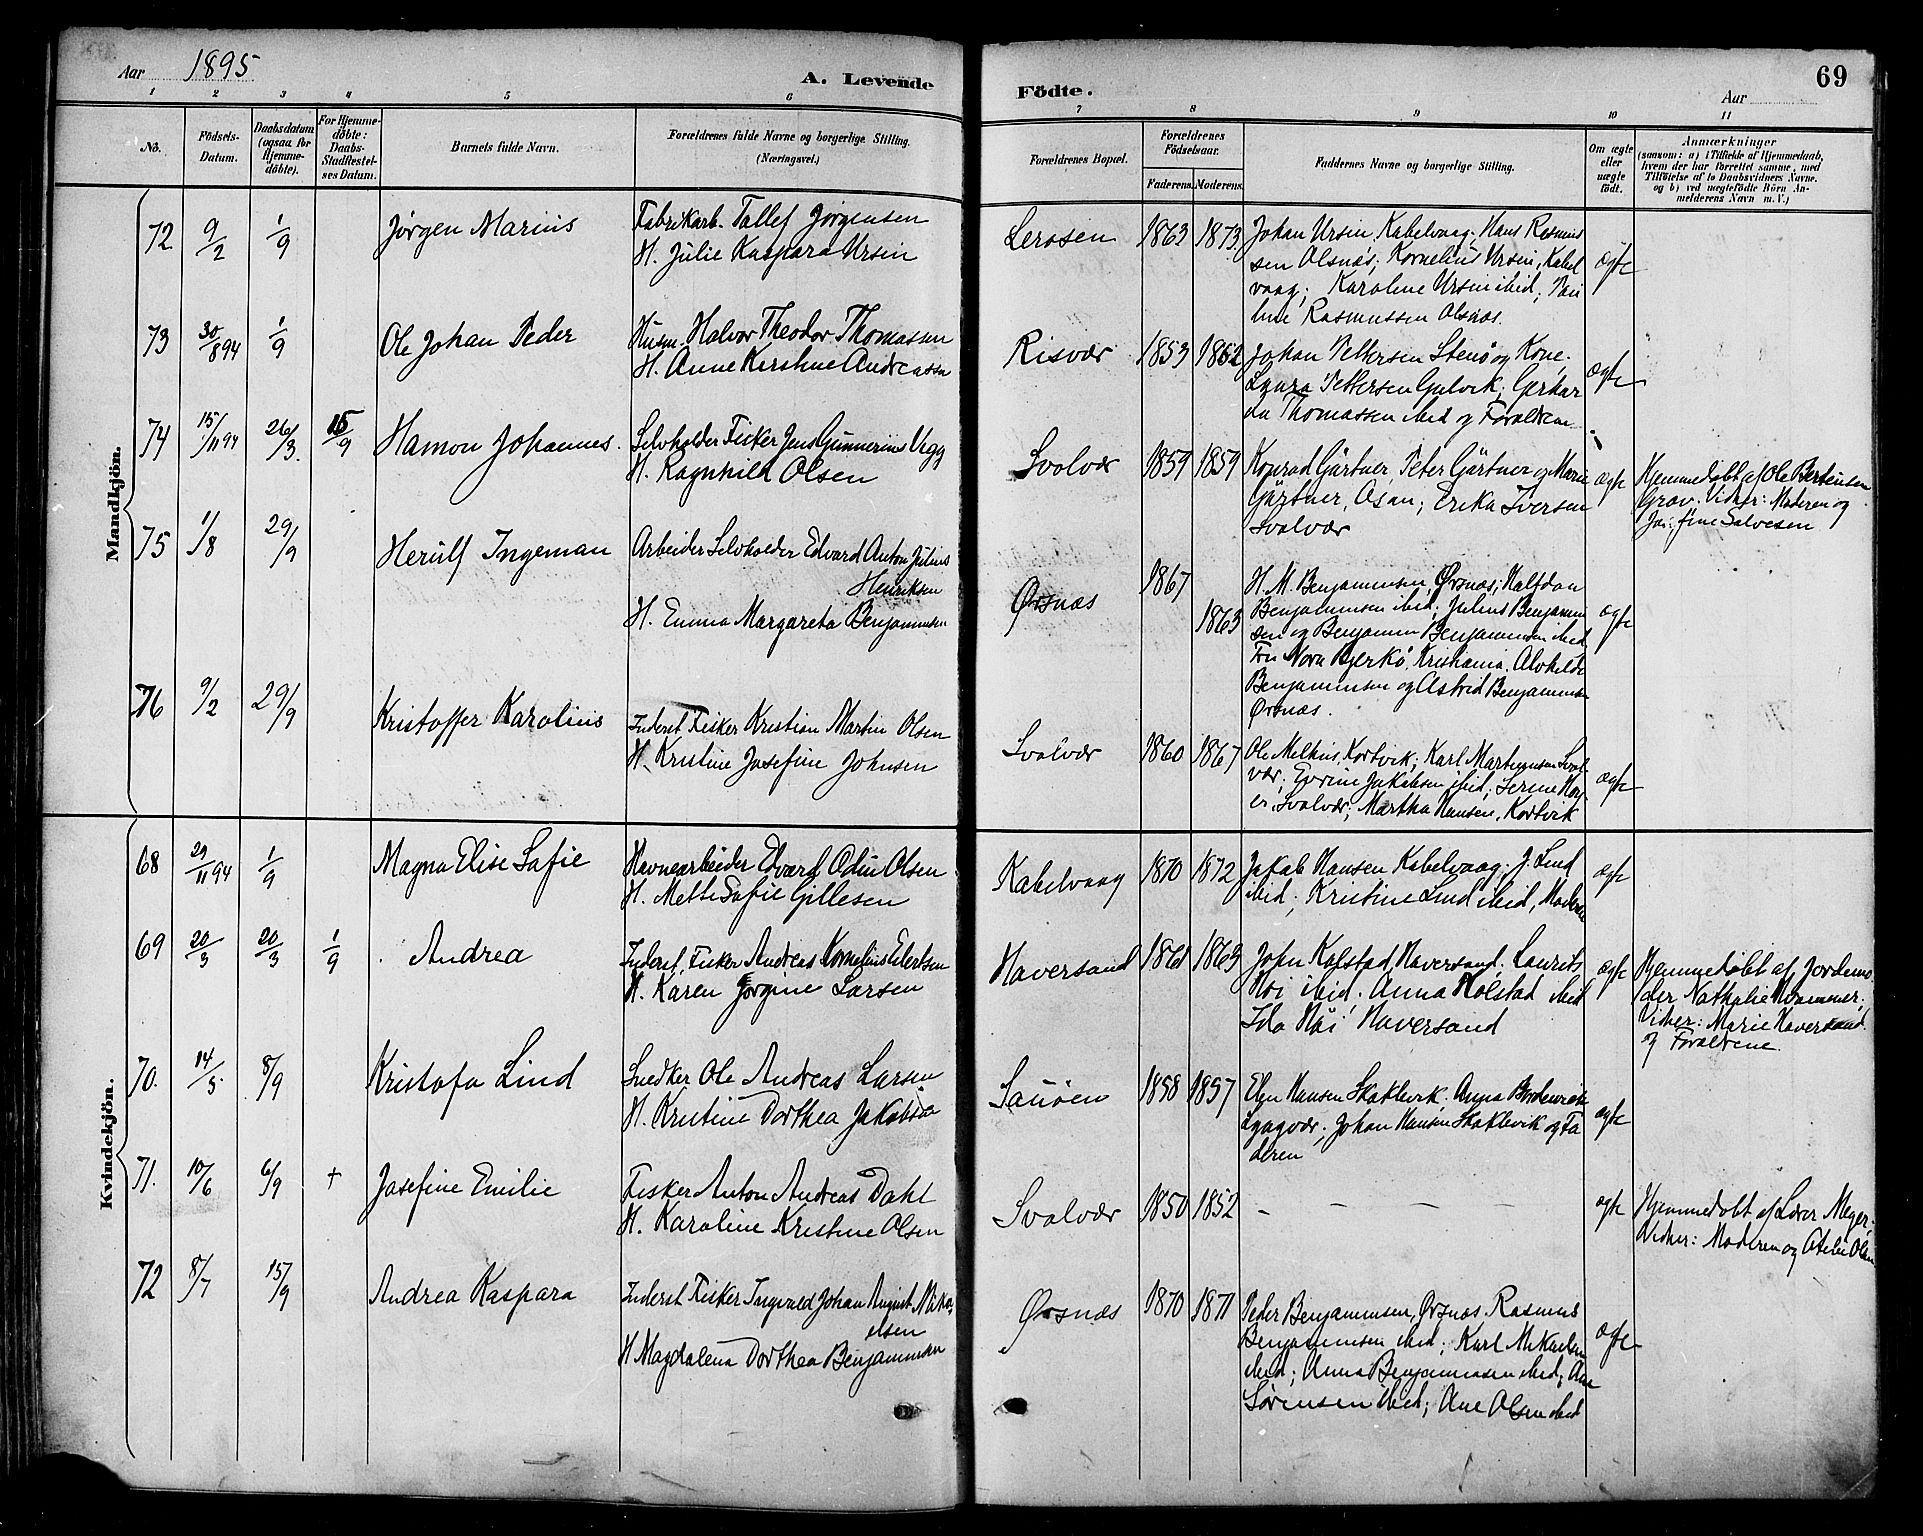 Aar 1895
A. Levende
Födte.
Aar
69
1 2 3 4 5 6
7 8 9 10 11
No.
Födsels-
Datum.
Daabsdatum
(ogsaa for
Hjemme-
döbte).
For Hjemme-
döbte:
Daabs-
Stadfæstel-
ses Datum.
Barnets fulde Navn.
Forældrenes fulde Navne og borgerlige Stilling.
(Næringsvei.)
Forældrenes Bopæl.
Forældrenes
Födselsaar.
Faderens. Moderens.
Faddernes Navne og borgerlige Stilling.
Om ægte
eller
uægte
födt.
Anmærkninger
(saasom: a) i Tilfælde af Hjemmedaab,
hvem der har forrettet samme, med
Tilföielse af to Daabsvidners Navne.
og b) ved uægtefödte Börn An-
melderens Navn m. V.)
Mandkjön.
72 9/2 1/9 Jørgen Marius
Fabrikarb. Tallef Jørgensen
H. Julie Kaspara Ursin
Lerosen 1863 1873
Johan Ursin, Kabelvaag; Hans Rasmus
sen Olsnæs; Kornelius Ursin, Kabel
vaag; Karoline Ursin ibid; Pau
line Rasmussen Olsnæs.
ægte
73 30/8 94 1/9 Ole Johan Peder
Husm. Halvor Theodor Thomassen
H. Anne Kirstine Andreassen
Risvær 1853 1862
Johan Pettersen Stenø og Kone.
Laura Pettersen Gulvik; Gerhar
da Thomassen ibid og Forældrene
ægte
74 15/11 94 26/3. 15/9 Hamon Johannes.
Selvholder Fisker Jens Gunnerius Vegg
H. Ragnhild Olsen
Svolvær 1859 1859
Konrad Gärtner, Peter Gärtner og Marie
Gärtner, Osan; Erika Iversen
Svolvær
ægte
Hjemmedøbt af Ole Bertensen
Grav. Vidner: Moderen og
Josefine Salvesen
75 1/8 29/9 Herulf Ingeman
Arbeider Selvholder Edvard Anton Julius
Henriksen
H. Emma Margareta Benjaminsen
Ørsnæs 1867 1863
H. M. Benjaminsen, Ørsnæs; Halfdan
Benjaminsen ibid; Julius Benjamin
sen og Benjamin Benjaminsen ibid
Fru Nora Bjerkø, Kristiania. Alvhilde
Benjaminsen og Astrid Benjaminsen
Ørsnæs.
ægte
76 9/2 29/9 Kristoffer Karolius
Inderst Fisker Kristian Martin Olsen
H. Kristine Josefine Johnsen
Svolvær 1860 1867
Ole Melkius, Kortvik; Karl Martinusen Svol
vær; Evrine Jakobsen ibid; Serine Hoy-
er. Svolvær; Martha Hansen, Kortvik
ægte
Kvindekjön.
68 29/11 94 1/9 Magna Elise Safie
Havnearbeider Edvard Odin Olsen
H. Mette Safie Gillesen
Kabelvaag 1870 1872
Jakob Hansen Kabelvaag; J. Lind
ibid; Kristine Lind ibid, Moderen
ægte
69 20/3 20/3 1/9 Andrea
Inderst, Fisker Andreas Kornelius Edertsen
H. Karen Jørgine Larsen
Haversand 1860 1863
John Kolstad, Haversand; Laurits
Høi ibid; Anna Kolstad ibid
Ida Høi Haversand
ægte
Hjemmedøbt af Jordemo
der Nathalie Hvammer;
Vidner: Marie Haversand
og Forældrene.
70. 14/5. 8/9 Kristofa Lind
Snedker Ole Andreas Larsen
H. Kristine Dorthea Jakobsen
Sauøen 1858 1857
Elen Hansen Skaklevik. Anna Brodersvik
Lyngvær; Johan Hansen Skaklevik og Fa
deren
ægte
71. 10/6 6/9 + Josefine Emilie
Fisker Anton Andreas Dahl
H. Karoline Kristine Olsen
Svolvær 1850 1852 – – – –
ægte
Hjemmedøbt af Lærer Meyer.
Vidner: Moderen og Atelie Olsen
72 8/7 15/9 Andrea Kaspara
Inderst Fisker Ingvald Johan August Mika
elsen
H Magdalena Dorthea Benjaminsen
Ørsnæs 1870 1871
Peder Benjaminsen, Ørsnæs. Rasmus
Benjaminsen ibid; Karl Mikaelsen
ibid; Anna Benjaminsen ibid; Ane
Sørensen ibid; Ane Olsen ibid
ægte